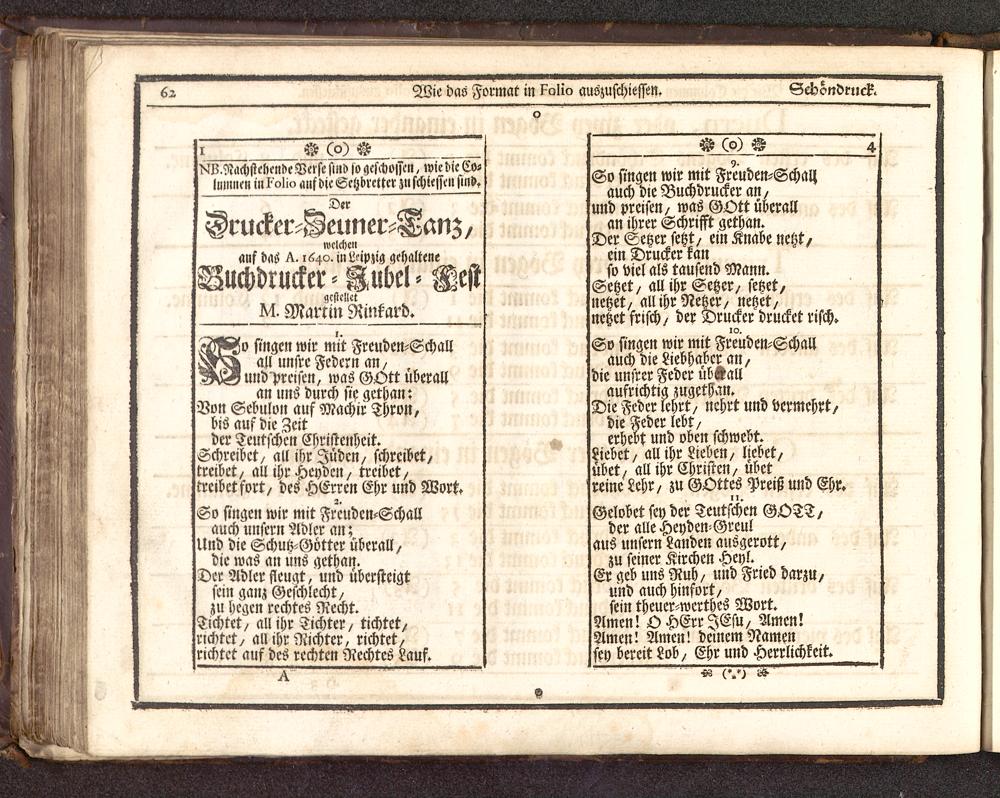 62
Wie das Format in Folio auszuschiessen.
Schöndruck.
1
(o)
NB. Nachstehende Verse sind so geschossen, wie die Co-
lumnen in Folio auf die Setzbretter zu schiessen sind.
Der
Drucker-Heuner-Tanz,
welchen
auf das A. 1640. in Leipzig gehaltene
Buchdrucker-Jubel-Fest
gestellet
M. Martin Rinkard.
1.
So singen wir mit Freuden-Schall
all unsre Federn an,
und preisen, was GOtt überall
an uns durch sie gethan:
Von Sebulon auf Machir Thron,
bis auf die Zeit
der Teutschen Christenheit.
Schreibet, all ihr Jüden, schreibet,
treibet, all ihr Heyden, treibet,
treibet fort, des HErren Ehr und Wort.
2.
So singen wir mit Freuden-Schall
auch unsern Adler an;
Und die Schutz-Götter überall,
die was an uns gethan.
Der Adler fleugt, und übersteigt
sein ganz Geschlecht,
zu hegen rechtes Recht.
Tichtet, all ihr Tichter, tichtet,
richtet, all ihr Richter, richtet,
richtet auf des rechten Rechtes Lauf.
A
(o)
4
9.
So singen wir mit Freuden-Schall
auch die Buchdrucker an,
und preisen, was GOtt überall
an ihrer Schrifft gethan.
Der Setzer setzt, ein Knabe netzt,
ein Drucker kan
so viel als tausend Mann.
Setzet, all ihr Setzer, setzet,
netzet, all ihr Netzer, netzet,
netzet frisch, der Drucker drucket risch.
10.
So singen wir mit Freuden-Schall
auch die Liebhaber an,
die unsrer Feder überall
aufrichtig zugethan.
Die Feder lehrt, nehrt und vermehrt,
die Feder lebt,
erhebt und oben schwebt.
Liebet, all ihr Lieben, liebet,
übet, all ihr Christen, übet
reine Lehr, zu GOttes Preiß und Ehr.
11.
Gelobet sey der Teutschen GOTT,
der alle Heyden-Greul
aus unsern Landen ausgerott,
zu seiner Kirchen Heyl.
Er geb uns Ruh, und Fried darzu,
und auch hinfort,
sein theuer-werthes Wort.
Amen! O HErr JEsu, Amen!
Amen! Amen! deinem Namen
sey bereit Lob, Ehr und Herrlichkeit.